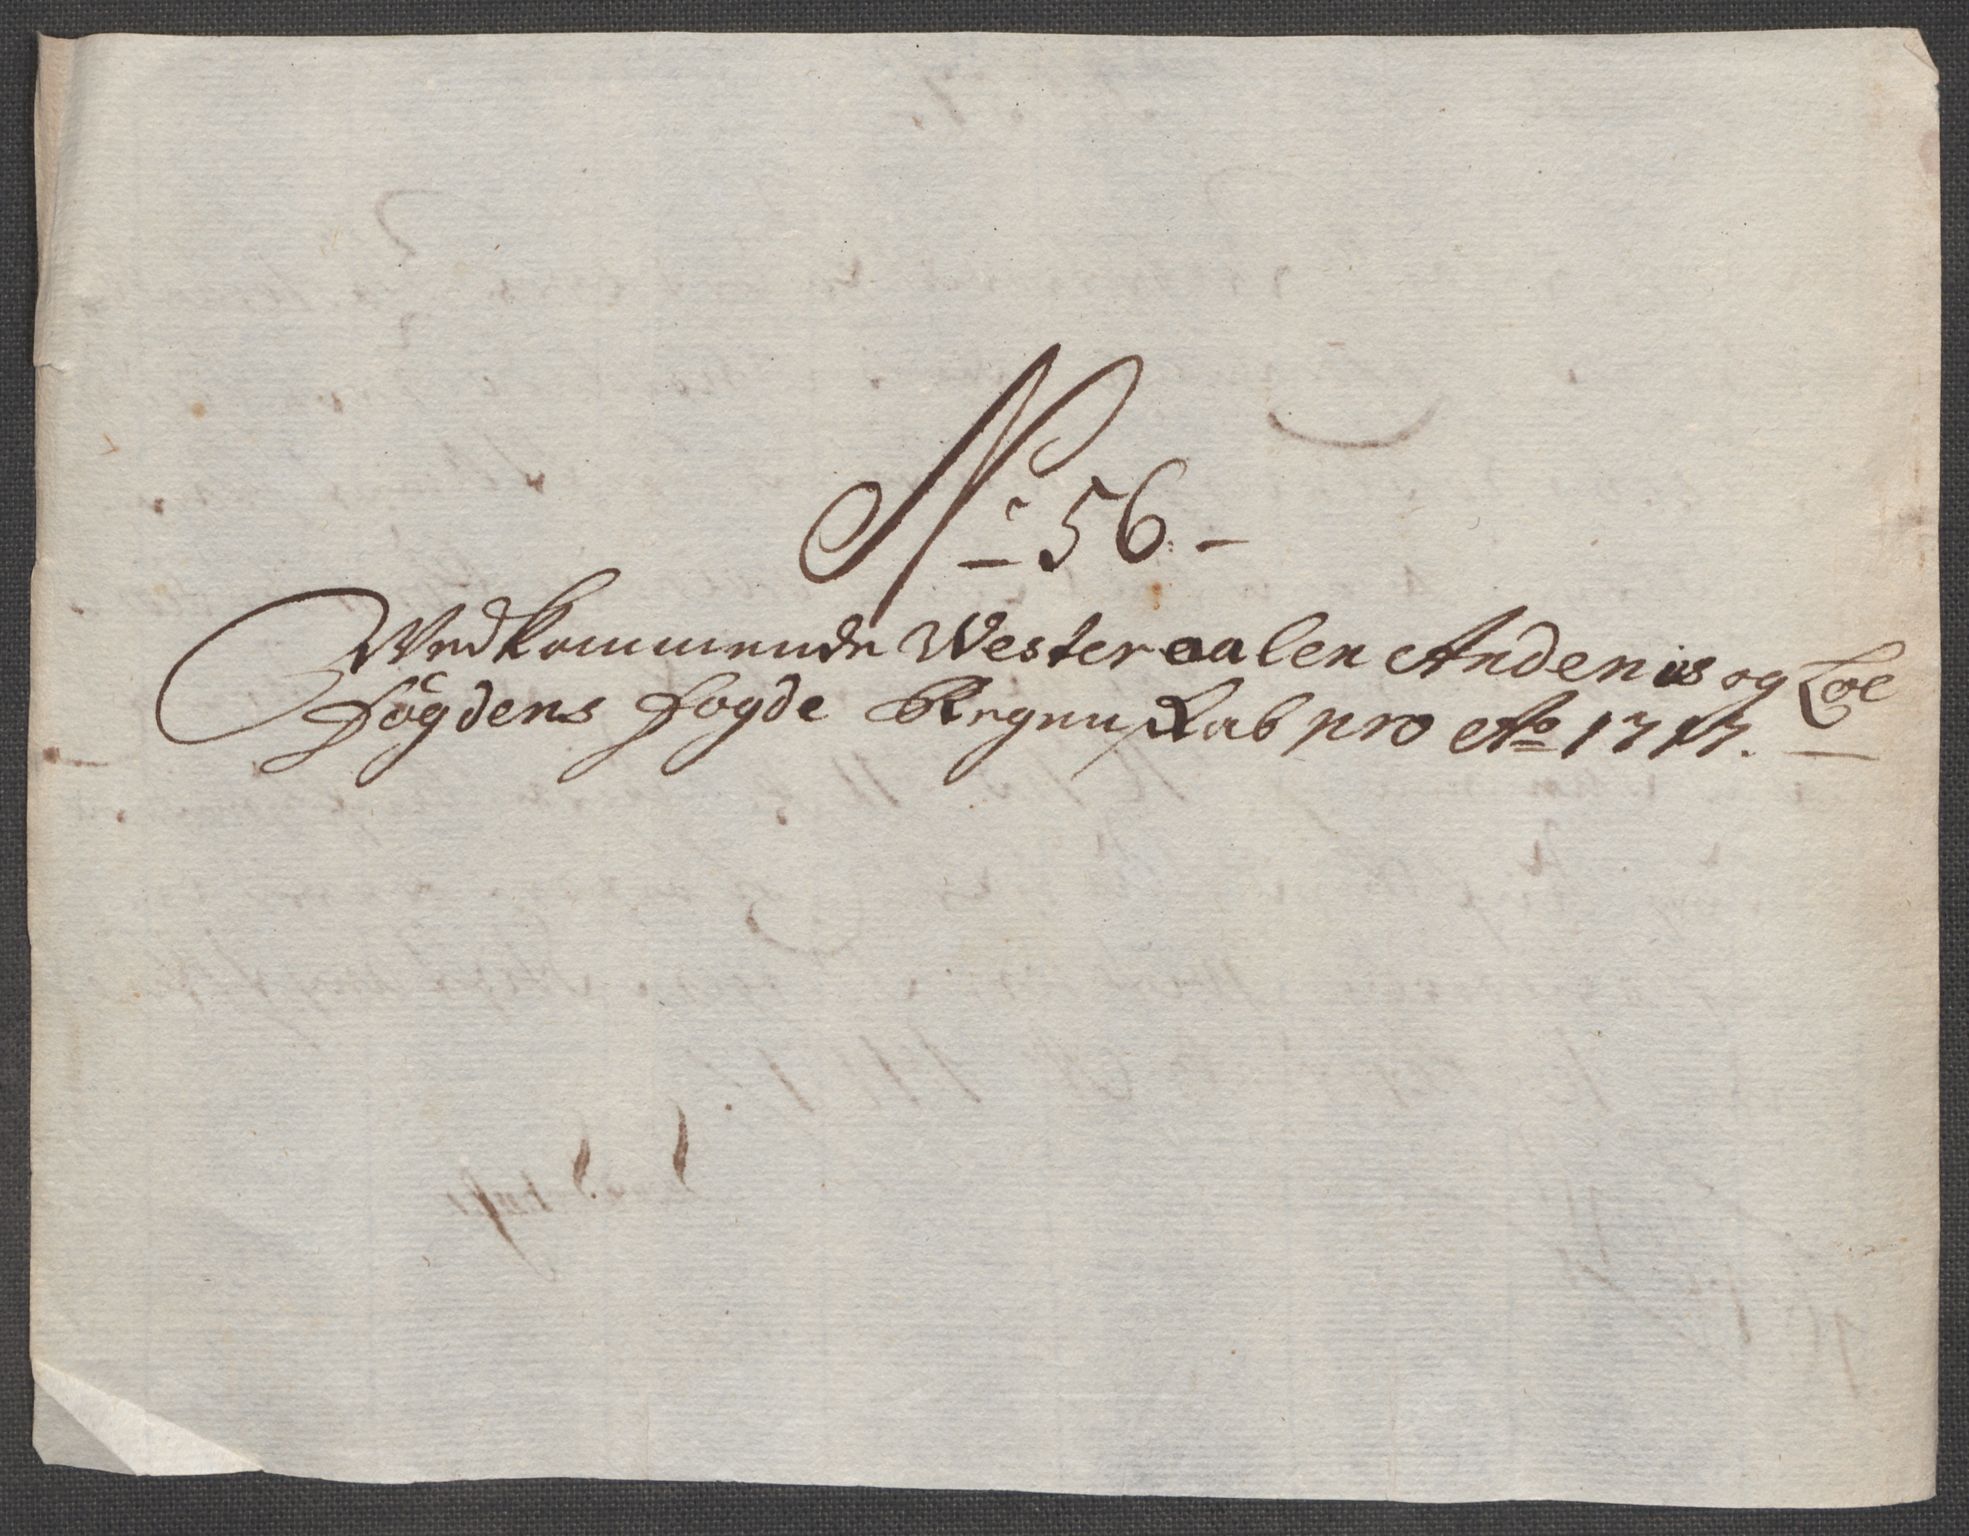 No 56.
Vedkommende Westeraalen Andenis og Loe
Fogdens Fogde Regnskab pro Ao 1717.